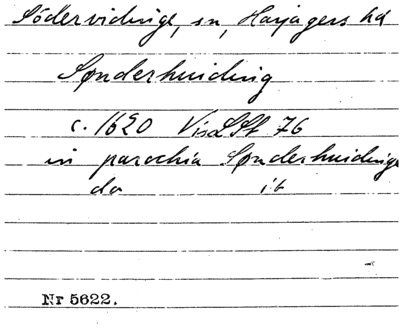 Södervidinge, sn, Harjagers hd
Sønderhuiding
c. 1620 VisLSt 76
in parochia Sønderhuidinge
do ib
Nr 5622.